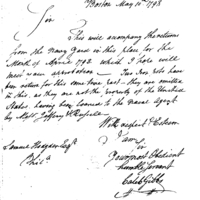 Boston May 15th 1798
Sir
This will accompany the returns
from the Navy Yard in this place for the
Month of April 1798 which I hope will
meet your approbation. Two Top sails have
been return for this some time past they are omitted
in this, as they are not the property of the United
States, having been loaned to the Naval Agent
by Messrs Jeffrey & Russell.
With respect & Esteem
I am
Sir
Samuel Hodgdon Esqr
Your most Obedient
Phila
humble Servant
Caleb Gibbs